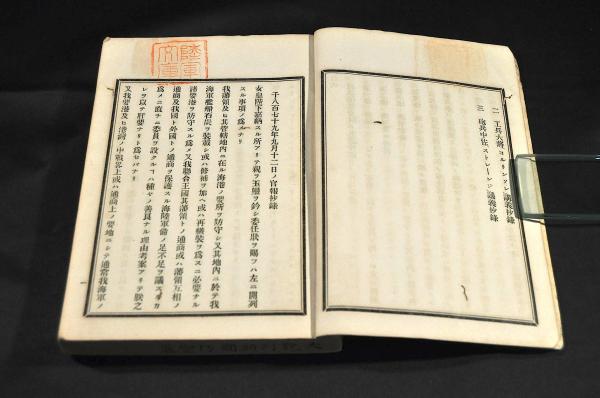 二 工兵大將コルリンソン講義抄錄
三 砲兵中佐ストレーンジ講義抄錄
陸軍
文庫
千八百七十九年九月十二日ノ官報抄錄
女皇陛下嘉納スル所アリテ親ヲ玉璽ヲ鈐シ委任狀ヲ賜フハ左ニ開列
スル事項ノ爲メナリ
我藩領及ヒ其管轄地内ニ在ル海港ノ要所ヲ防守シ又其地内ニ於テ我
海軍艦船石炭ヲ裝載シ或ハ修補ヲ加ヘ或ハ再艤裝ヲ爲スニ必要ナル
諸要港ヲ防守スル爲メ又我聯合王國其藩領トノ通商或ハ藩領互相ノ
通商及我國ト外國トノ通商ヲ保護スル海陸軍備ノ足不足ヲ議スルカ
爲メニ直チニ委員ヲ設クルハ種々ノ善良ナル理由考案アリテ朕之
レヲ以テ肝要ナリト爲セハナリ
又我要港及ヒ港洞ノ中戰畧上或ハ通商上ノ要地ニシテ通常我海軍ノ